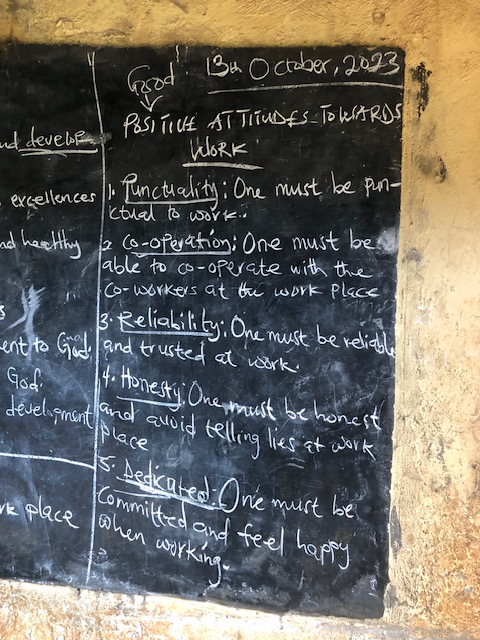 nd develop
excellences
nd healthy
ent to God.
God.
development
place
Good 13th October, 2023
POSITIVE ATTITUDES TOWARDS
WORK
1. Punctuality: One must be pun-
ctual to work.
2 Co-operation: One must be
able to co-operate with the
co-workers at the work place
3. Reliability: One must be reliable
and trusted at work.
4. Honesty: One must be honest
and avoid telling lies at work
place
5. Dedicated: One must be
committed and feel happy
when working.